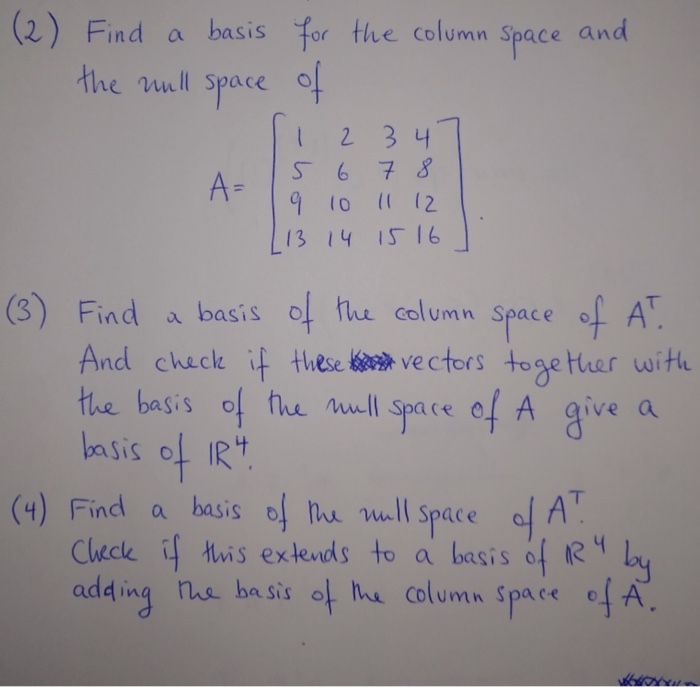 (2) Find a basis for the column space and
the null space of
A = [ 1 2 3 4
5 6 7 8
9 10 11 12
13 14 15 16 ].
(3) Find a basis of the column space of Aᵀ.
And check if these vectors together with
the basis of the null space of A give a
basis of ℝ⁴.
(4) Find a basis of the null space of Aᵀ.
Check if this extends to a basis of ℝ⁴ by
adding the basis of the column space of A.